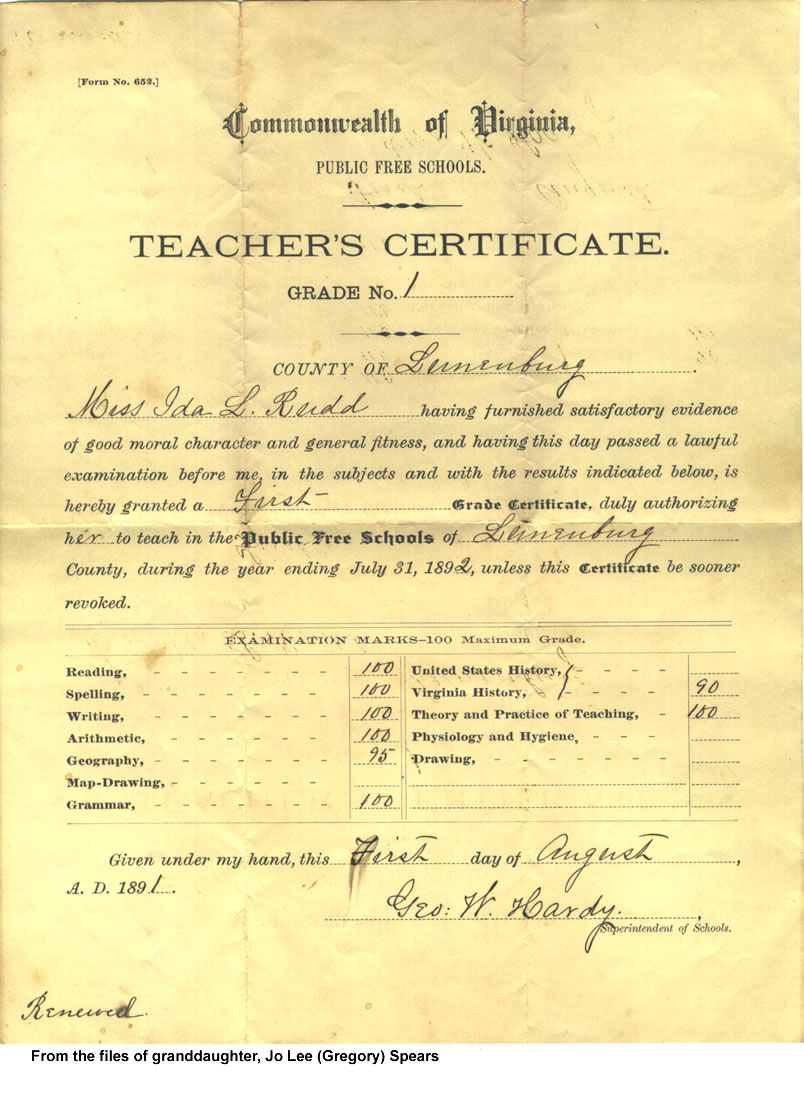 [Form No. 652.]
Commonwealth of Virginia,
PUBLIC FREE SCHOOLS.
TEACHER'S CERTIFICATE.
GRADE No. 1
COUNTY OF Lunenburg.
Miss Ida L. Rudd having furnished satisfactory evidence
of good moral character and general fitness, and having this day passed a lawful
examination before me, in the subjects and with the results indicated below, is
hereby granted a First Grade Certificate, duly authorizing
her to teach in the Public Free Schools of Lunenburg
County, during the year ending July 31, 1892, unless this Certificate be sooner
revoked.
EXAMINATION MARKS-100 Maximum Grade.
Reading, 100
Spelling, 100
Writing, 100
Arithmetic, 100
Geography, 95
Map-Drawing,
Grammar, 100
United States History, }
Virginia History, } 90
Theory and Practice of Teaching, 100
Physiology and Hygiene,
Drawing,
Given under my hand, this First day of August,
A. D. 1891.
Geo: W. Hardy.,
Superintendent of Schools.
Renewed.
From the files of granddaughter, Jo Lee (Gregory) Spears